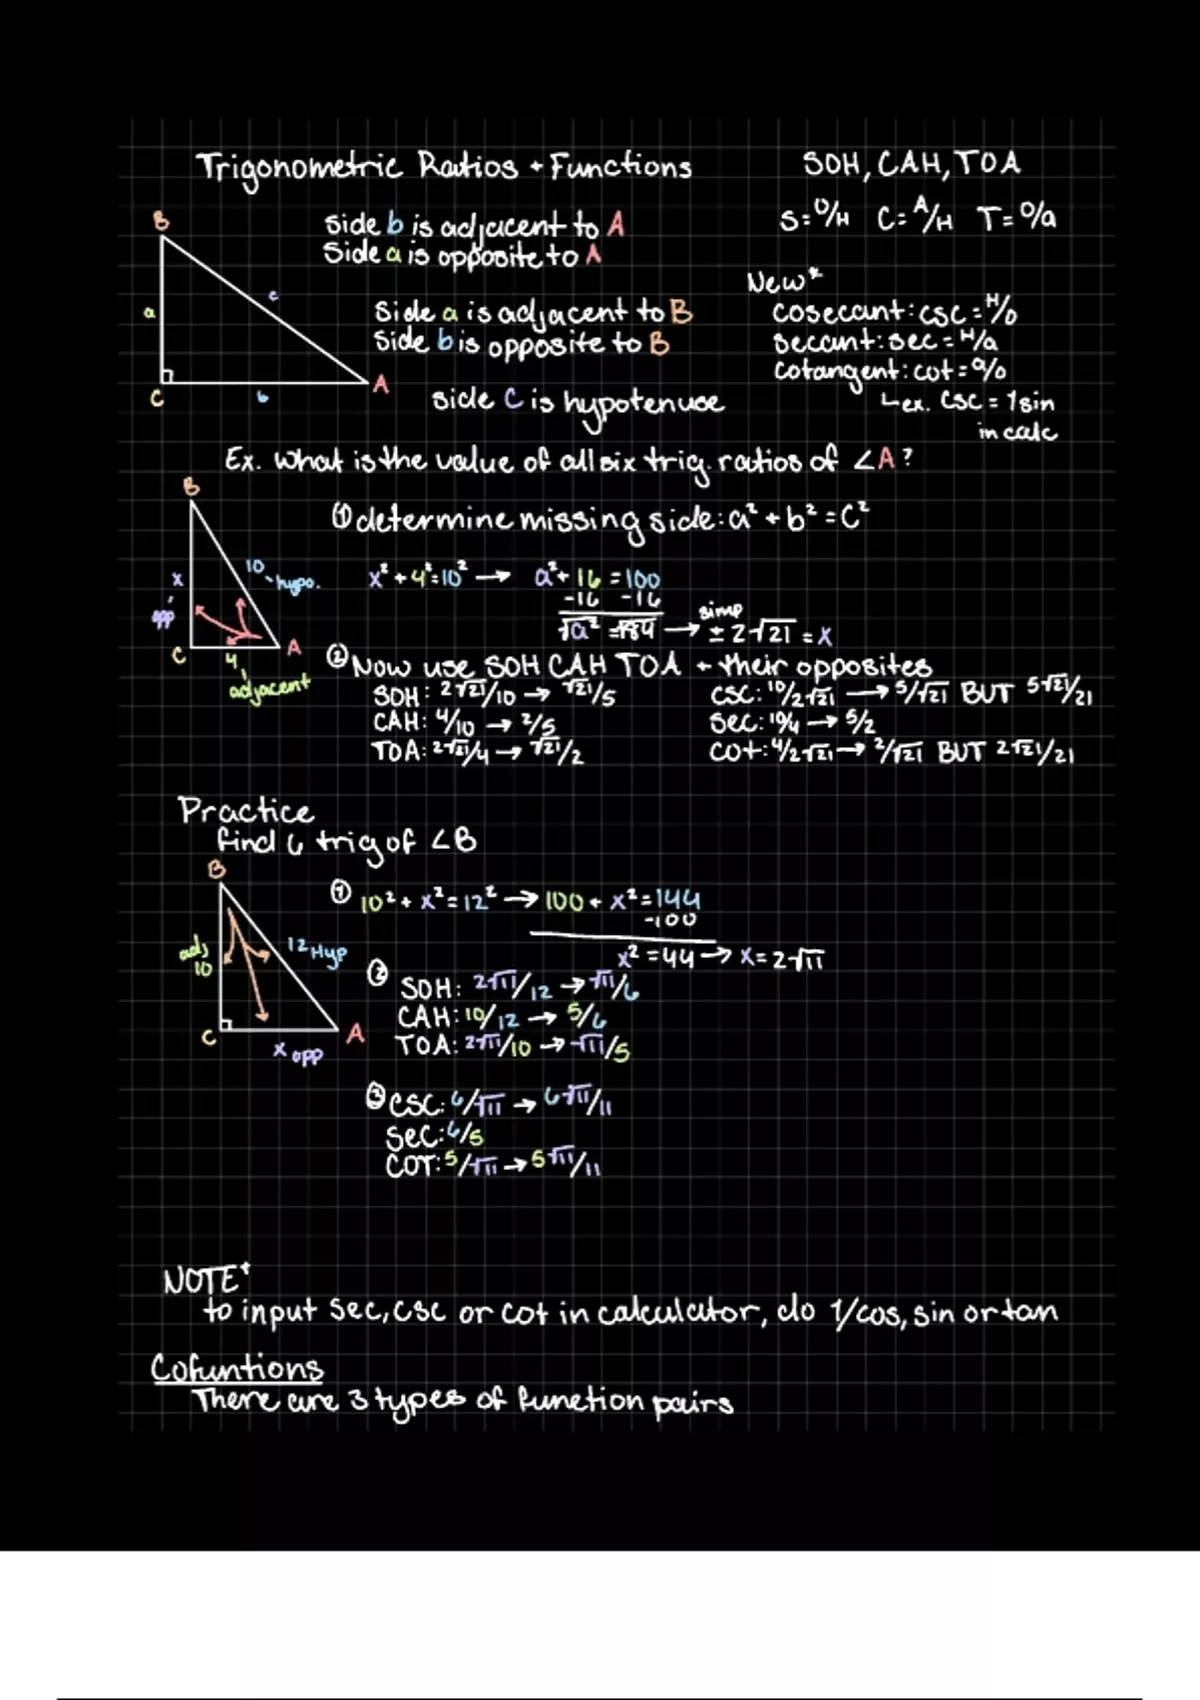 Trigonometric Ratios + Functions
SOH, CAH, TOA
S=O/H C=A/H T=O/a
B
side b is adjacent to A
Side a is opposite to A
c
a
Side a is adjacent to B
Side b is opposite to B
C
b
A
side C is hypotenuse
New*
cosecant: csc = H/o
seccant: sec = H/a
cotangent: cot = a/o
ex. CSC = 1sin
in calc
Ex. What is the value of all six trig. ratios of ∠A?
B
x
opp
10
hypo.
C
4
A
adjacent
① determine missing side: a² + b² = C²
x² + 4² = 10² → a² + 16 = 100
-16 -16
√a² = √84 → simp ± 2√21 = x
② Now use SOH CAH TOA + their opposites
SOH: 2√21/10 → √21/5
CAH: 4/10 → 2/5
TOA: 2√21/4 → √21/2
CSC: 10/2√21 → 5/√21 BUT 5√21/21
Sec: 10/4 → 5/2
COt: 4/2√21 → 2/√21 BUT 2√21/21
Practice
find 6 trig of ∠B
B
adj
10
12 Hyp
C
A
x opp
① 10² + x² = 12² → 100 + x² = 144
-100
x² = 44 → x = 2√11
② SOH: 2√11/12 → √11/6
CAH: 10/12 → 5/6
TOA: 2√11/10 → √11/5
③ CSC: 6/√11 → 6√11/11
Sec: 6/5
COT: 5/√11 → 5√11/11
NOTE*
to input sec, csc or cot in calculator, do 1/cos, sin or tan
Cofuntions
There are 3 types of function pairs